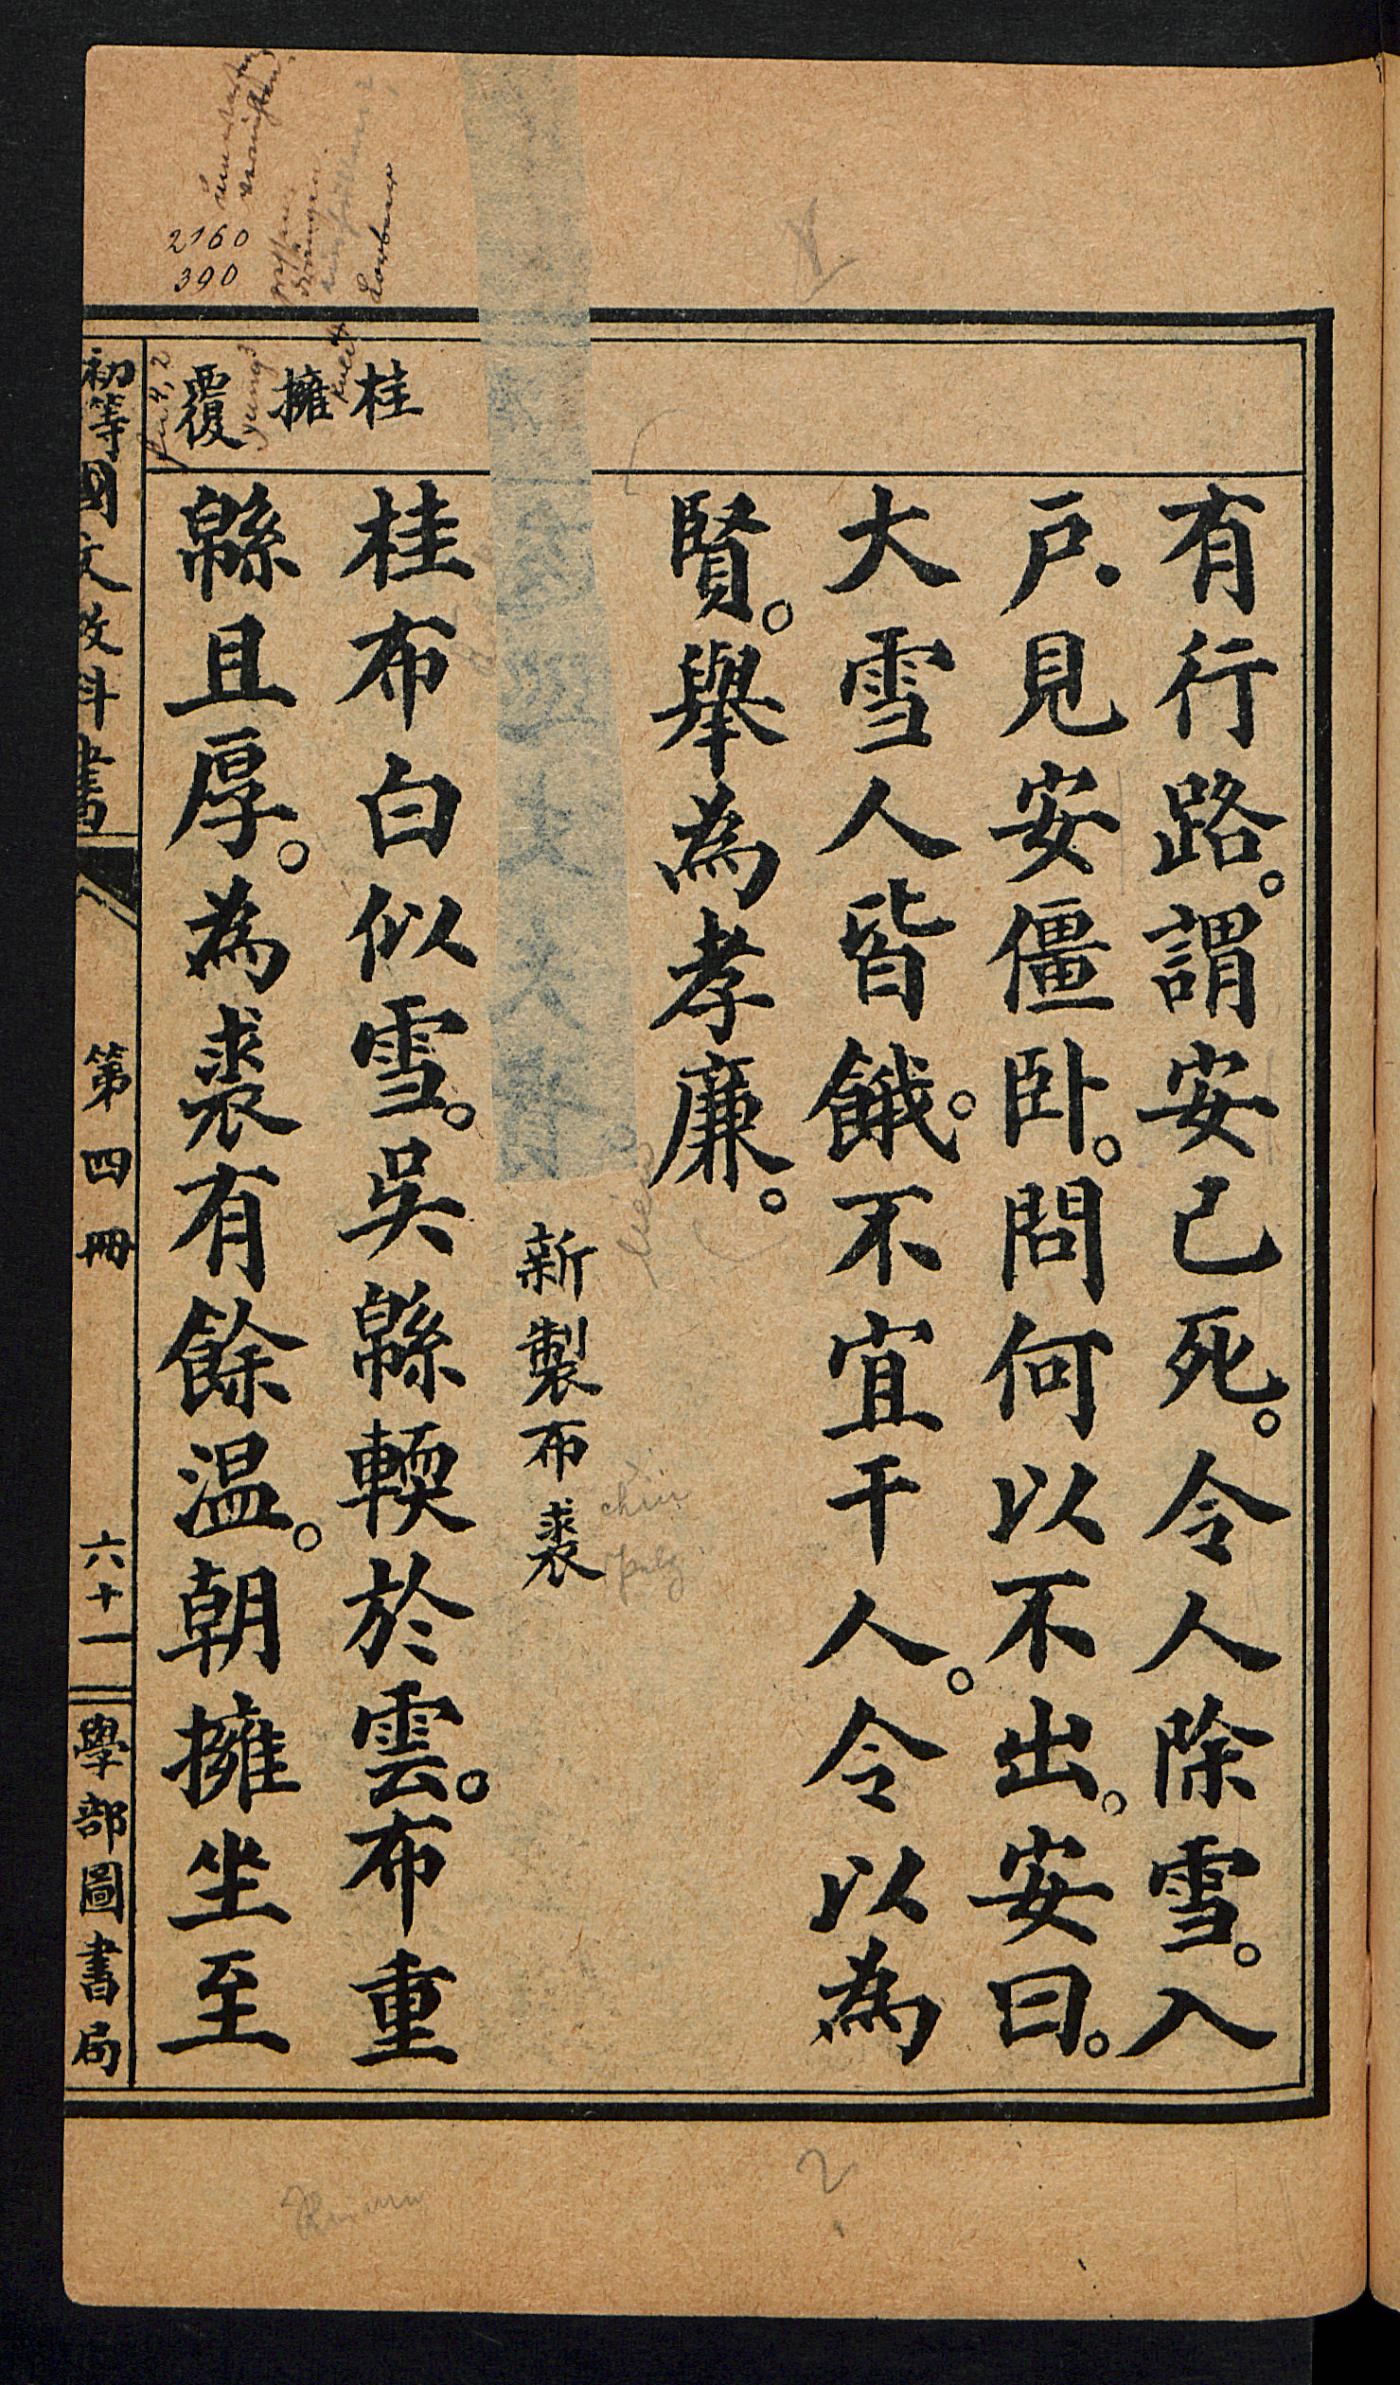 有行路。謂安已死。令人除雪。入
戶。見安僵臥。問何以不出。安曰。
大雪人皆餓。不宜干人。令以為
賢。舉為孝廉。
新製布裘
桂布白似雪。吳緜輭於雲。布重
緜且厚。為裘有餘温。朝擁坐至
桂
擁
覆
初等國文教科書
第四冊
六十一
學部圖書局
2160
390
yung3
Lorbeer
chiu
Pelz
2